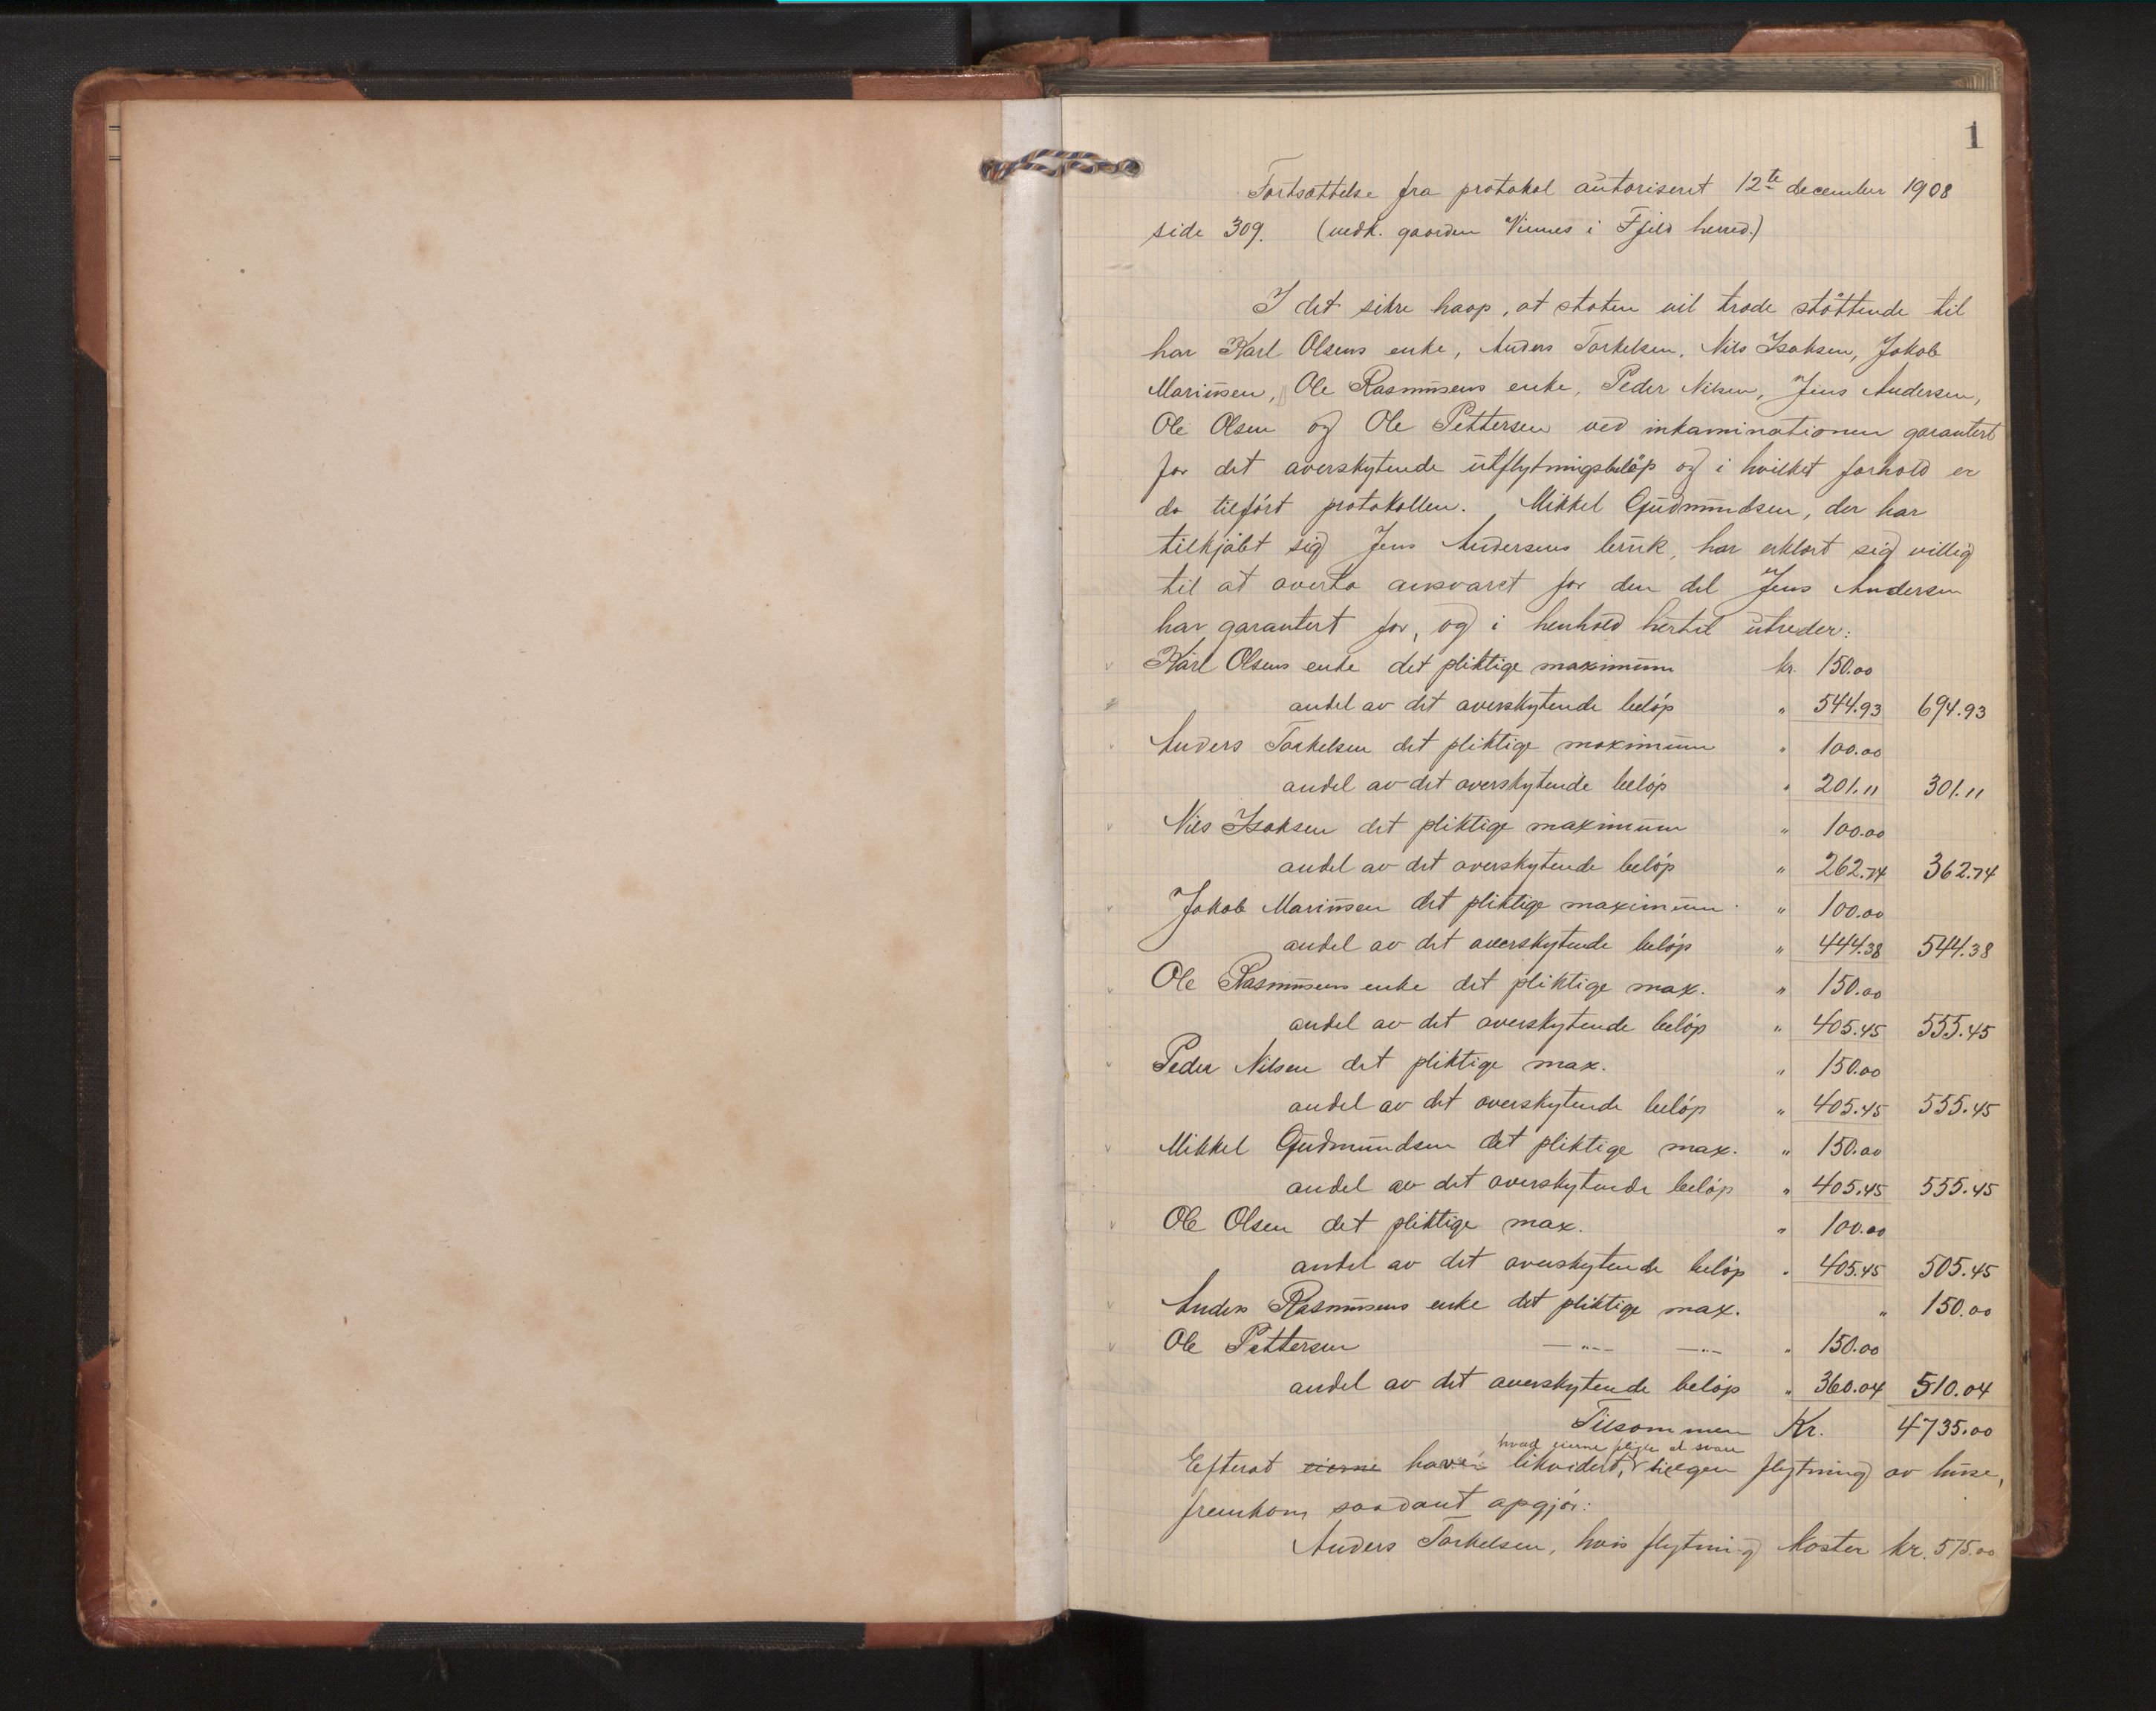 1
Fortsættelse fra protokol autoriseret 12te december 1908
side 309. (vedk. gaarden Vinnes i Fjeld herred.)
I det sikre haap, at staten vil træde støttende til
har Karl Olsens enke, Anders Torkelsen, Nils Isaksen, Jakob
Mariusen, Ole Rasmusens enke, Peder Nilsen, Jens Andersen,
Ole Olsen og Ole Pettersen ved inkaminationen garantert
for det overskytende utflytningsbeløp og i hvilket forhold er
da tilført protokollen. Mikkel Gudmundsen, der har
tilkjøbt sig Jens Andersens bruk, har erklært sig villig
til at overta ansvaret for den del Jens Andersen
har garantert for, og i henhold hertil utreder:
v Karl Olsens enke det pliktige maximum kr. 150.00
andel av det overskytende beløp " 544.93 694.93
Anders Torkelsen det pliktige maximum " 100.00
andel av det overskytende beløp " 201.11 301.11
v Nils Isaksen det pliktige maximum " 100.00
andel av det overskytende beløp " 262.74 362.74
v Jakob Mariusen det pliktige maximum " 100.00
andel av det overskytende beløp " 444.38 544.38
v Ole Rasmusens enke det pliktige max. " 150.00
andel av det overskytende beløp " 405.45 555.45
v Peder Nilsen det pliktige max. " 150.00
andel av det overskytende beløp " 405.45 555.45
v Mikkel Gudmundsen det pliktige max. " 150.00
andel av det overskytende beløp " 405.45 555.45
v Ole Olsen det pliktige max. " 100.00
andel av det overskytende beløp " 405.45 505.45
v Anders Rasmusens enke det pliktige max. " 150.00
v Ole Pettersen —"— —"— " 150.00
andel av det overskytende beløp " 360.04 510.04
Tilsammen Kr. 4735.00
hvad eierne pligter at svare
Efterat eierne haver likvidert, flytning av huse,
fremkom saadant opgjør:
Anders Torkelsen, hvis flytning koster kr. 575.00